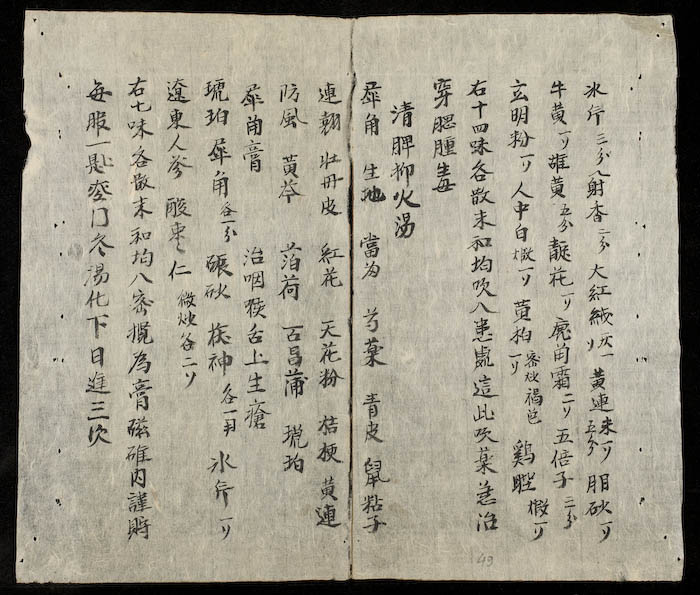 氷片三分 射香二分 大紅絨灰一刂 黄連末一刂五分 朋砂一刂
牛黄一刂 雄黄五分 靛花一刂 鹿角霜二刂 五倍子二分
玄明粉一刂 人中白煅一刂 黄柏蜜炒褐色一刂 鷄 煅一刂
右十四味各散末和均吹八患處這此吹藥兼治
穿腮腫毒
清脾抑火湯
犀角 生地 當為 芍藥 青皮 鼠粘子
連翹 牡丹皮 紅花 天花粉 桔梗 黄連
防風 黄芩 萡荷 石昌蒲 琥珀
犀角膏 治咽喉舌上生瘡
琥珀 犀角各一分 硃砂 茯神各一刃 氷片一刂
遼東人參 酸棗仁微炒各二刂
右七味各散末和均八密攪為膏磁確内謹貯
每服一匙麥门冬湯化下日進三次
49